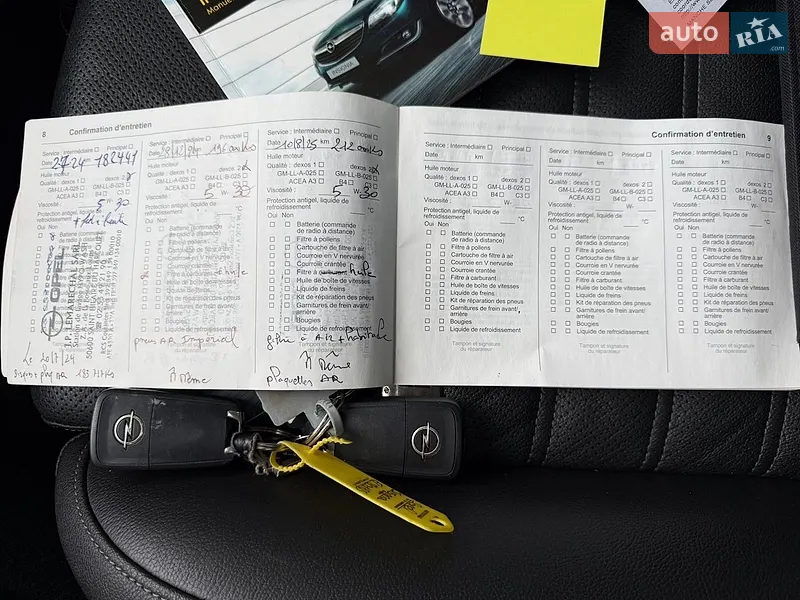 Manuel
INSIGNIA
auto RIA
.com
8 Confirmation d'entretien
Service : Intermédiaire ☐ Principal ☐
Date 2724 182441
Huile moteur
Qualité : dexos 1 ☐ dexos 2
GM-LL-A-025 ☐ GM-LL-B-025 ☐
ACEA A3 ☐ B4 ☐ C3 ☐
Viscosité : 5 30
Protection antigel, liquide de
refroidissement:
Oui Non
OPEL
J.P. LEMARECHAL SARL
Le 20/7/24
Service : Intermédiaire ☐ Principal ☐
Huile moteur
Qualité : dexos 1 ☐ dexos 2
GM-LL-A-025 ☐ GM-LL-B-025 ☐
ACEA A3 ☐
Viscosité : 5 W- 30
Protection antigel, liquide de
refroidissement: °C
Oui Non
Batterie (commande
de radio à distance)
Filtre à pollens
Cartouche de filtre à air
Courroie en V nervurée
Courroie crantée
Filtre à huile
Huile de boîte de vitesses
Liquide de freins
Kit de réparation des pneus
Garnitures de frein avant/
arrière
Bougies
Liquide de refroidissement
pneus AR Imperial
Tampon et signature
du réparateur
Service : Intermédiaire ☐ Principal ☐
Date 210825 km 212
Huile moteur
Qualité : dexos 1 ☐ dexos 2
GM-LL-A-025 ☐ GM-LL-B-025 ☐
ACEA A3 ☐ B4 ☐ C3 ☐
Viscosité : 5 W- 30
Protection antigel, liquide de
refroidissement: °C
Oui Non
Batterie (commande
de radio à distance)
Filtre à pollens
Cartouche de filtre à air
Courroie en V nervurée
Courroie crantée
Filtre à carburant huile
Huile de boîte de vitesses
Liquide de freins
Kit de réparation des pneus
Garnitures de frein avant/
arrière
Bougies
Liquide de refroidissement
Tampon et signature
du réparateur
plaquettes AR
Confirmation d'entretien 9
Service : Intermédiaire ☐ Principal ☐
Date km
Huile moteur
Qualité : dexos 1 ☐ dexos 2 ☐
GM-LL-A-025 ☐ GM-LL-B-025 ☐
ACEA A3 ☐ B4 ☐ C3 ☐
Viscosité : W-
Protection antigel, liquide de
refroidissement: °C
Oui Non
Batterie (commande
de radio à distance)
Filtre à pollens
Cartouche de filtre à air
Courroie en V nervurée
Courroie crantée
Filtre à carburant
Huile de boîte de vitesses
Liquide de freins
Kit de réparation des pneus
Garnitures de frein avant/
arrière
Bougies
Liquide de refroidissement
Tampon et signature
du réparateur
Service : Intermédiaire ☐ Principal ☐
Date km
Huile moteur
Qualité : dexos 1 ☐ dexos 2 ☐
GM-LL-A-025 ☐ GM-LL-B-025 ☐
ACEA A3 ☐ B4 ☐ C3 ☐
Viscosité : W-
Protection antigel, liquide de
refroidissement: °C
Oui Non
Batterie (commande
de radio à distance)
Filtre à pollens
Cartouche de filtre à air
Courroie en V nervurée
Courroie crantée
Filtre à carburant
Huile de boîte de vitesses
Liquide de freins
Kit de réparation des pneus
Garnitures de frein avant/
arrière
Bougies
Liquide de refroidissement
Tampon et signature
du réparateur
Service : Intermédiaire ☐ Principal ☐
Date km
Huile moteur
Qualité : dexos 1 ☐ dexos 2 ☐
GM-LL-A-025 ☐ GM-LL-B-025 ☐
ACEA A3 ☐ B4 ☐ C3 ☐
Viscosité : W-
Protection antigel, liquide de
refroidissement: °C
Oui Non
Batterie (commande
de radio à distance)
Filtre à pollens
Cartouche de filtre à air
Courroie en V nervurée
Courroie crantée
Filtre à carburant
Huile de boîte de vitesses
Liquide de freins
Kit de réparation des pneus
Garnitures de frein avant/
arrière
Bougies
Liquide de refroidissement
Tampon et signature
du réparateur